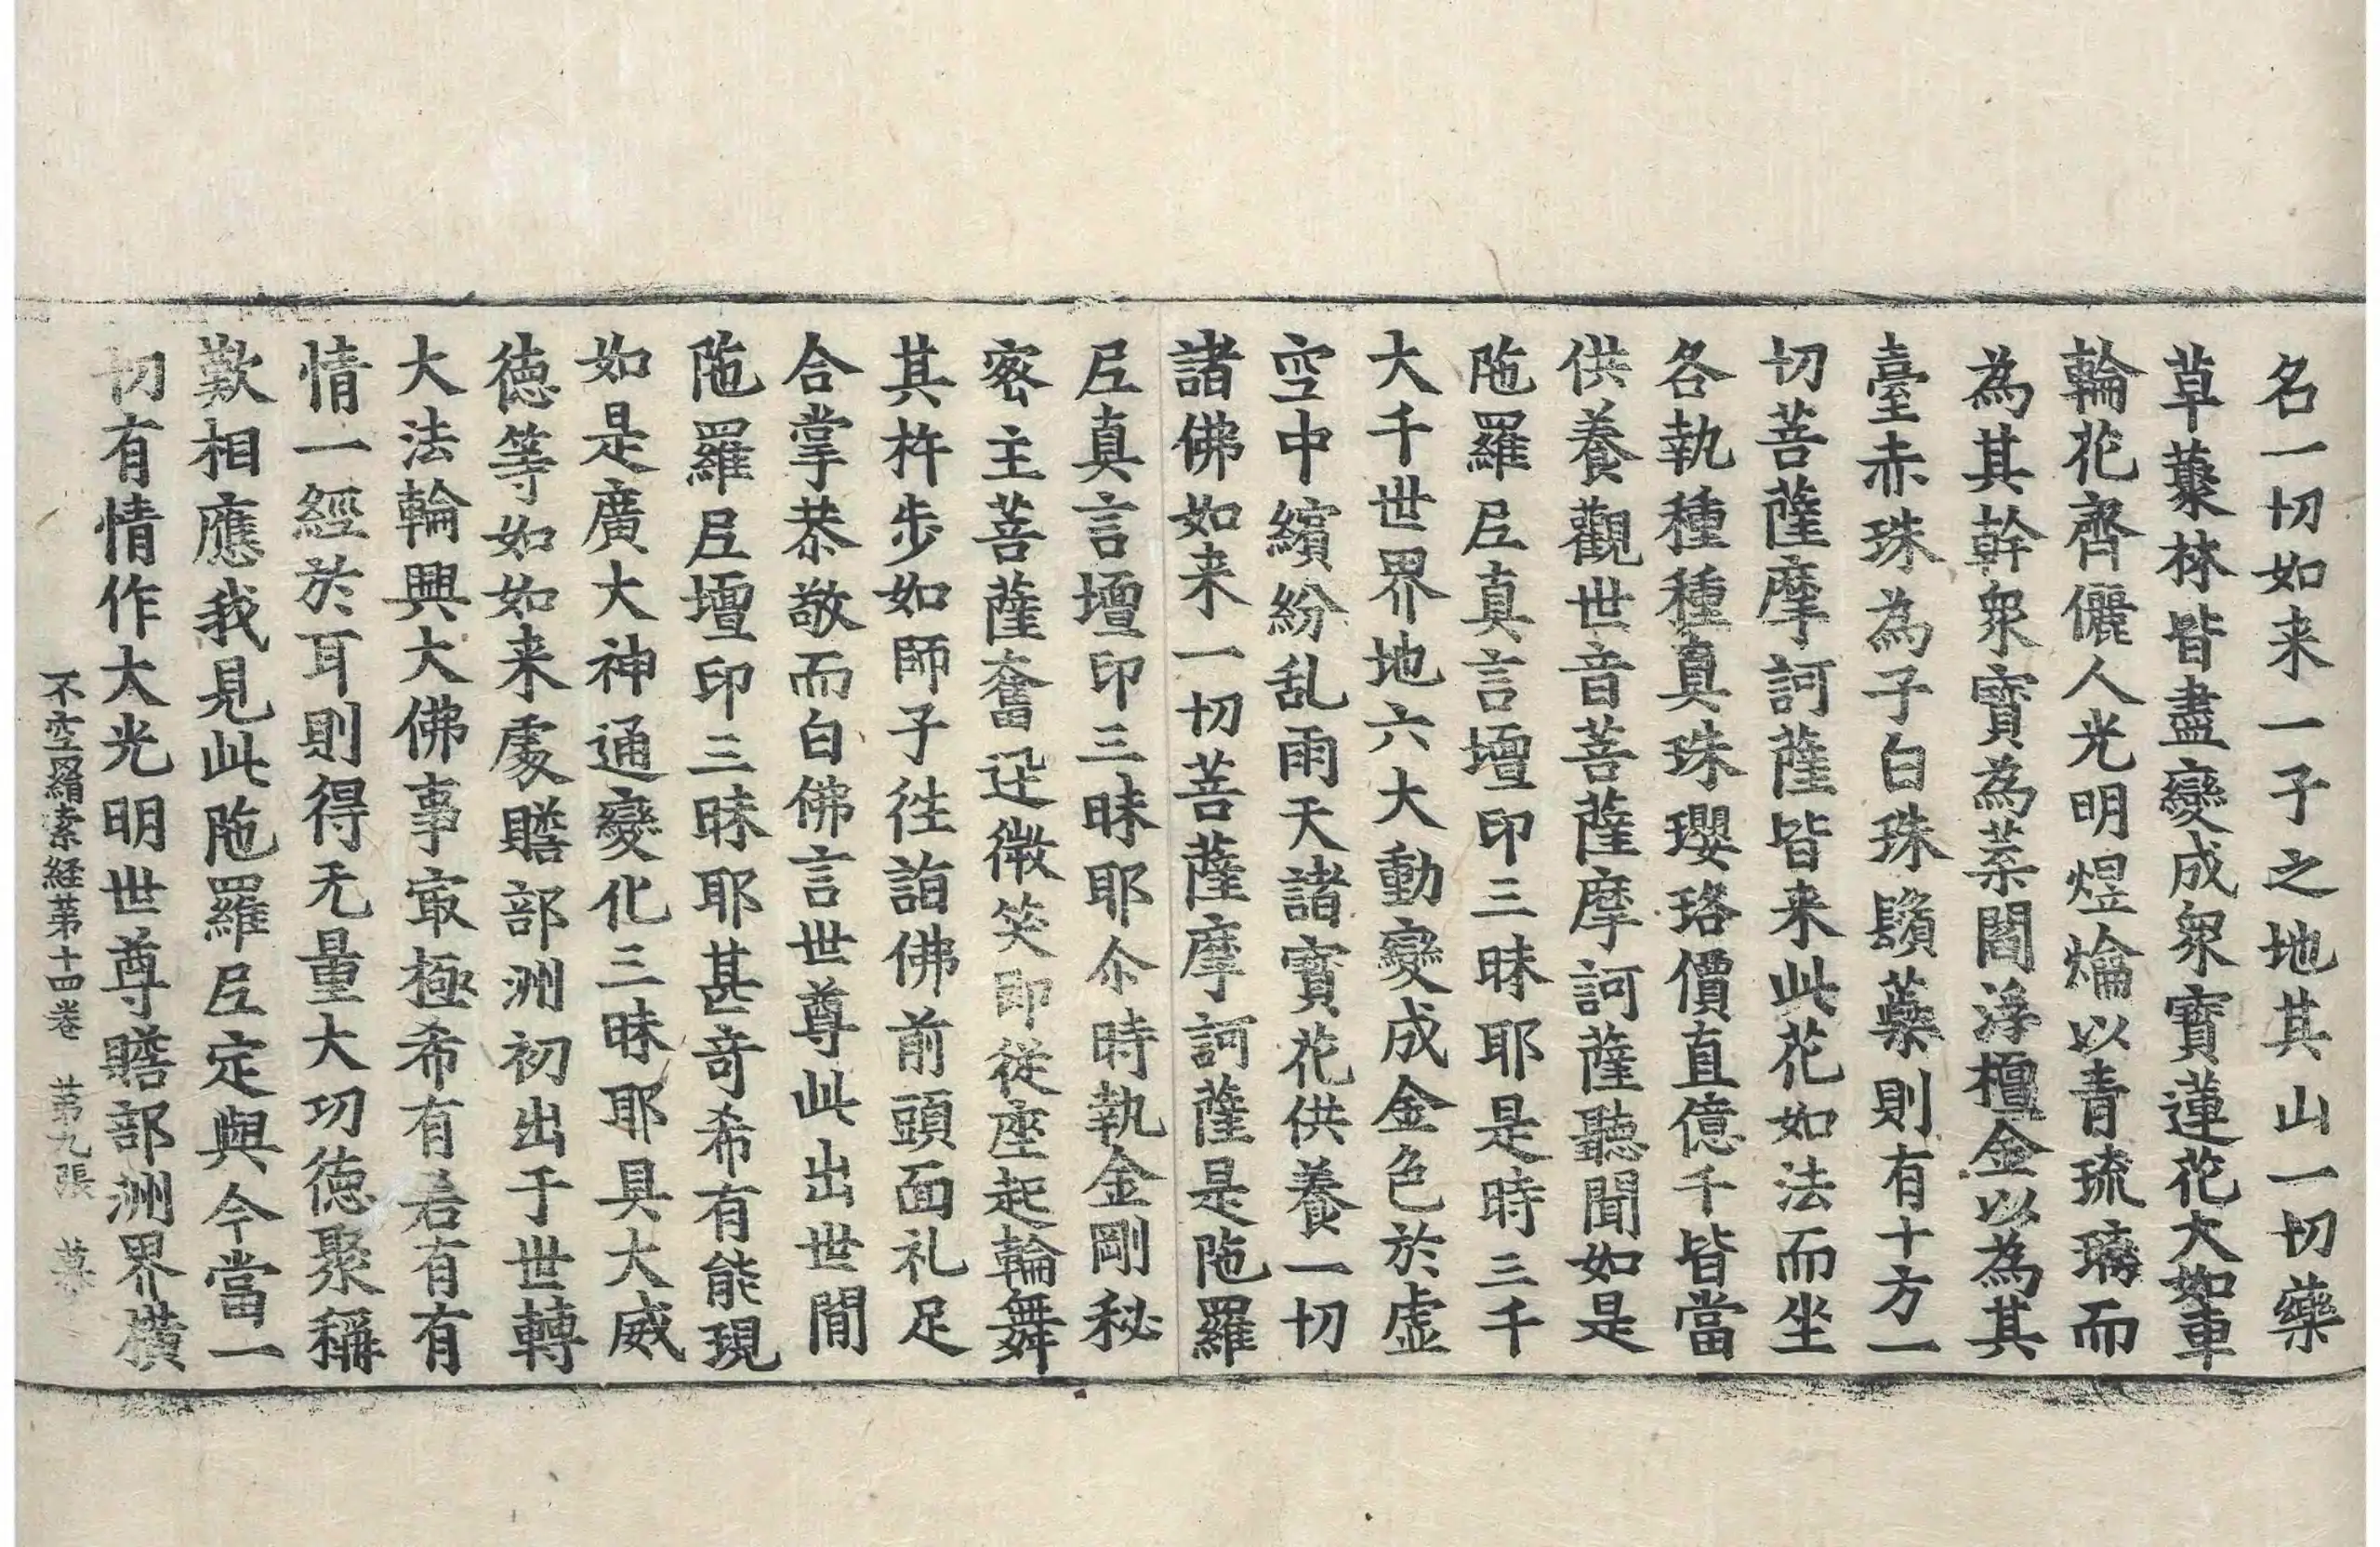 名一切如来一子之地其山一切藥
草藂林皆盡變成衆寶蓮花大如車
輪花齊儷人光明煜爚以青琉璃而
為其幹衆寶為葉閻浮檀金以為其
臺赤珠為子白珠鬚蘂則有十方一
切菩薩摩訶薩皆来此花如法而坐
各執種種真珠瓔珞價直億千皆當
供養觀世音菩薩摩訶薩聽聞如是
陁羅尼真言壇印三昧耶是時三千
大千世界地六大動變成金色於虛
空中繽紛乱雨天諸寶花供養一切
諸佛如来一切菩薩摩訶薩是陁羅
尼真言壇印三昧耶尒時執金剛秘
密主菩薩奮迅微笑即從座起輪舞
其杵步如師子往詣佛前頭面礼足
合掌恭敬而白佛言世尊此出世間
陁羅尼壇印三昧耶甚奇希有能現
如是廣大神通變化三昧耶具大威
德等如如来處贍部洲初出于世轉
大法輪興大佛事㝡極希有若有有
情一經於耳則得无量大功德聚稱
歎相應我見此陁羅尼定與今當一
切有情作大光明世尊贍部洲界橫
不空羂索経苐十四卷 苐九張 慕